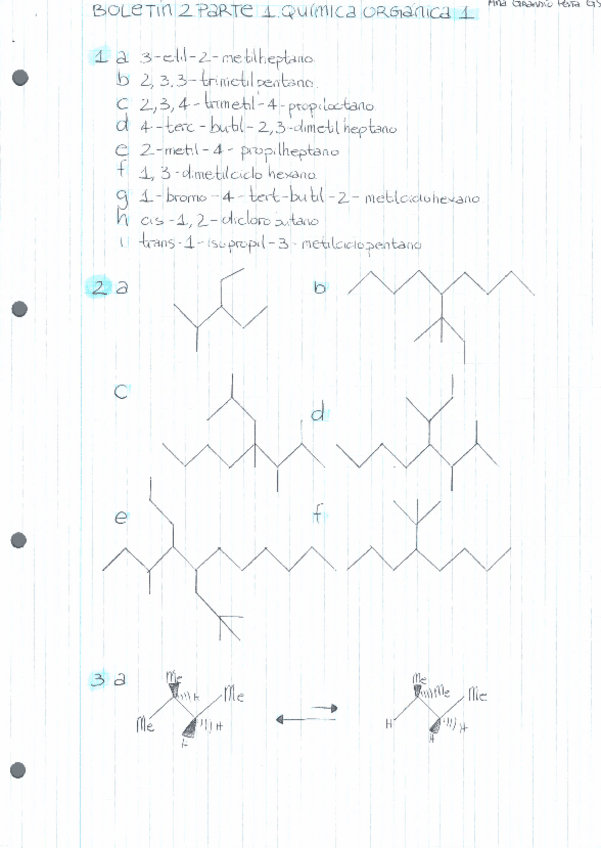 BOLETÍN 2 PARTE 1. QUÍMICA ORGÁNICA 1
1 a 3-etil-2-metilheptano
b 2,3,3-trimetilpentano.
c 2,3,4-trimetil-4-propiloctano
d 4-terc-butil-2,3-dimetilheptano
e 2-metil-4-propilheptano
f 1,3-dimetilciclohexano.
g 1-bromo-4-tert-butil-2-metilciclohexano
h cis-1,2-diclorobutano
i trans-1-isopropil-3-metilciclopentano
2 a b
c d
e f
3 a
Me H Me Me H H
Me Me Me H H H